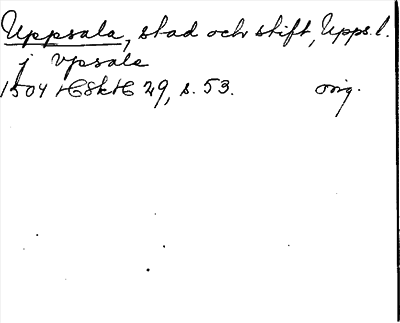 Uppsala, stad och stift, Upps. l.
j vpsale
1504 HSkH 29, s. 53. orig.